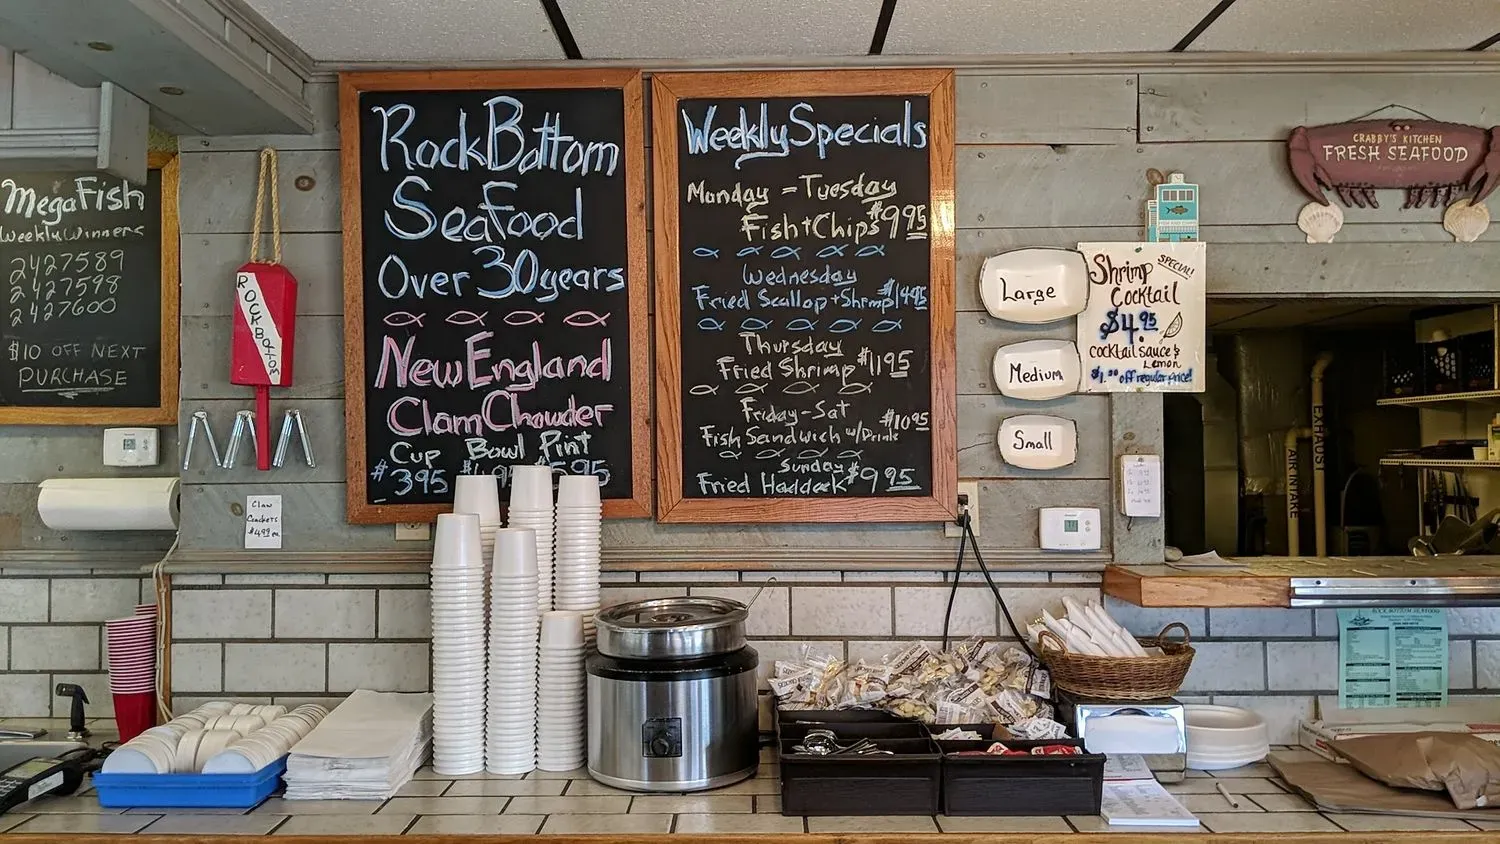 MegaFish
Weekly Winners
2427589
2427598
2427600
$10 OFF NEXT
PURCHASE
ROCK BOTTOM
Claw
Crackers
$4.99 ea.
RockBottom
SeaFood
Over 30 years
New England
Clam Chowder
Cup Bowl Pint
$395 $495 595
Weekly Specials
Monday = Tuesday
Fish+Chips $9 95
Wednesday
Fried Scallop + Shrimp $14 95
Thursday
Fried Shrimp $11 95
Friday-Sat
Fish Sandwich w/Drink $10 95
Sunday
Fried Haddock $9 95
Large
Medium
Small
Shrimp SPECIAL!
Cocktail
$4.95
cocktail sauce &
Lemon
$1.00 off regular price!
CRABBY'S KITCHEN
FRESH SEAFOOD
AIR INTAKE
EXHAUST
ROCK BOTTOM SEAFOOD